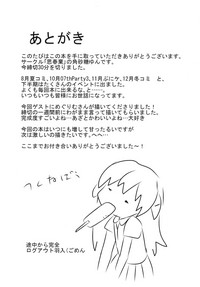 あとがき
このたびはこの本を手に取っていただきありがとうございます。
サークル「思春業」の角砂糖ゆんです。
今締切30分を切りました。
8月夏コミ、10月07thParty3、11月ぷにケ、12月冬コミ と
下半期はたくさんのイベントに出ました。
よく毎回本に出来るな、と……
いつもいつも皆様にお世話になってます。
今回ゲストにめぐりむさんが描いてくださいました!
締切の一週間前にわがまま言って描いてもらいました。
完成度すごいよね…あざとかわいいよね…大好き
今回の本はいつにも増して甘ったるいですが
次は激しいの描きたいです。へへへ…
ここまでお付き合いありがとうございました〜!
つくねばぅ
途中から完全
ログアウト羽入(ごめん